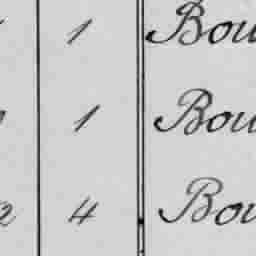 1 Bou
1 Bou
2 4 Bou